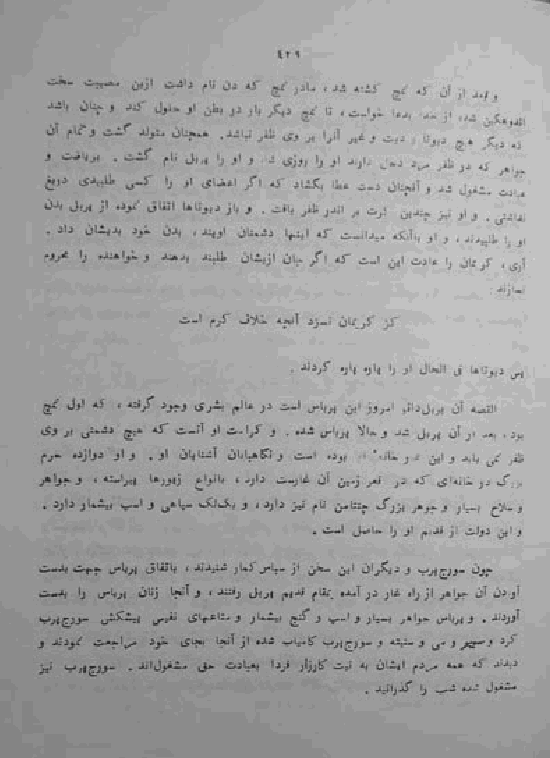 ٤٢٩
و بعد از آن که نمچ کشته شد، مادر نمچ که دن نام داشت ازین مصیبت سخت
اندوهگین شد از خدا بدعا خواست، تا نمچ دیگر بار دو بطن او حلول کند و چنان باشد
که دیگر هیچ دیوتا و دیت و غیر آنرا بر وی ظفر نباشد. همچنان متولد گشت و تمام آن
جواهر که دو ظفر مرد دخل دارند او را روزی شد و او را پربل نام گشت. بریاضت و
عبادت مشغول شد و آنچنان دست عطا بگشاد که اگر اعضای او را کسی طلبیدی دریغ
نداشتی. و او نیز چندین کرت بر اندر ظفر یافت. و باز دیوتاها اتفاق نموده از پربل بدن
او را طلبیدند، و او باآنکه میدانست که اینها دشمنان اویند، بدن خود بدیشان داد.
آری، کریمان را عادت این است که اگر جان ازیشان طلبند بدهند و خواهنده را محروم
نسازند:
کز کریمان نسزد آنچه خلاف کرم است
پس دیوتاها فی الحال او را پاره پاره کردند.
القصه آن پربل‌دانو امروز این پرپاس است در عالم بشری وجود گرفته، که اول نمچ
بود، بعد از آن پربل شد و حالا پرپاس شده. و کرامت او آنست که هیچ دشمنی بر وی
ظفر نمی یابد و این بوده است و نگاهبانان آشنایان او. و او دوازده حرم
بزرگ دو خانه‌ای که در قعر زمین آن عمارت دارد، بانواع زیورها پیراسته، و جواهر
و سلاح بسیار و جوهر بزرگ چنتامن نام نیز دارد، و یک‌لک سپاهی و اسپ بیشمار دارد.
و این دولت از قدیم او را حاصل است.
چون سورج‌پرب و دیگران این سخن از سباس‌کمار شنیدند، باتفاق پرپاس جهت بدست
آوردن آن جواهر از راه غار در آمده بمقام قدیم پربل رفتند، و آنجا زنان پرپاس را بدست
آوردند. و پرپاس جواهر بسیار و اسپ و گنج بیشمار و متاعهای نفیس پیشکش سورج‌پرب
کرد و می و سنیته و سورج‌پرب کامیاب شده از آنجا بجای خود مراجعت نمودند و
دیدند که همه مردم ایشان به نیت کارزار فردا بعبادت حق مشغول‌اند. سورج‌پرب نیز
مشغول شده شب را گذرانید.